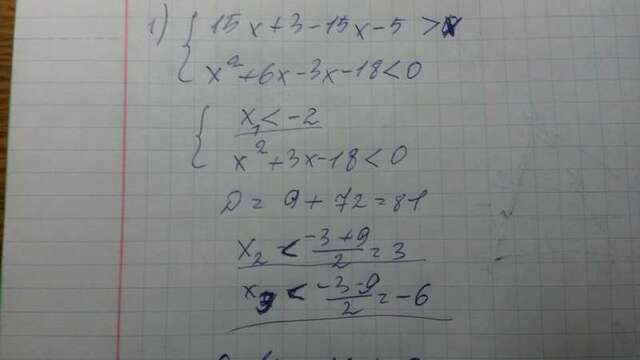 1) { 15x+3-15x-5 > x
x²+6x-3x-18<0
{ x₁ < -2
x²+3x-18<0
D = 9 + 72 = 81
x₂ < (-3+9)/2 = 3
x₃ < (-3-9)/2 = -6